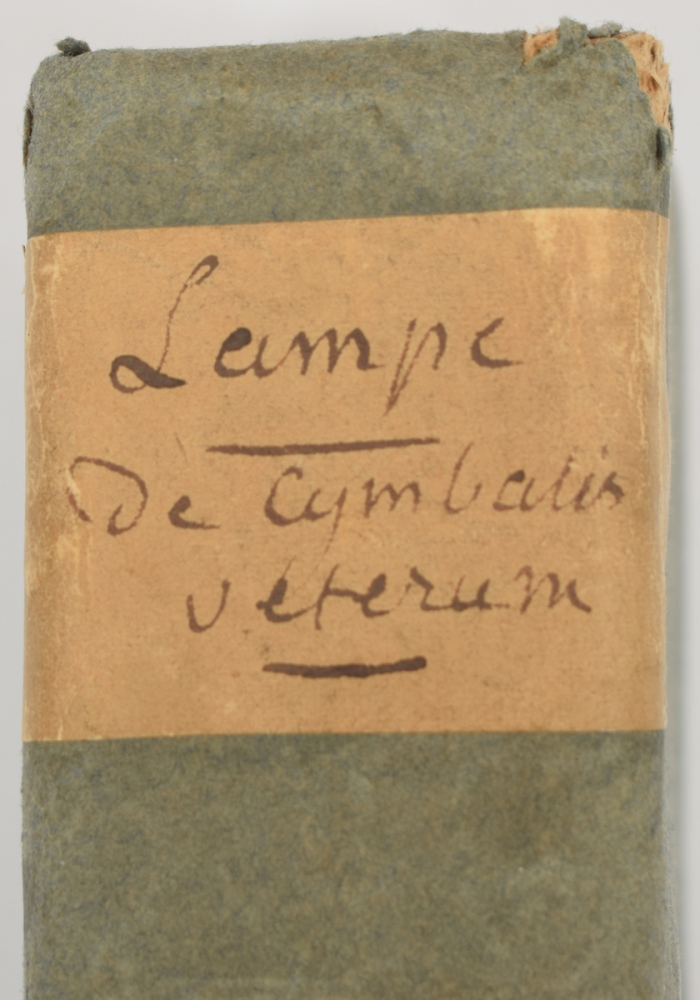 Lampe
De Cymbalis
veterum